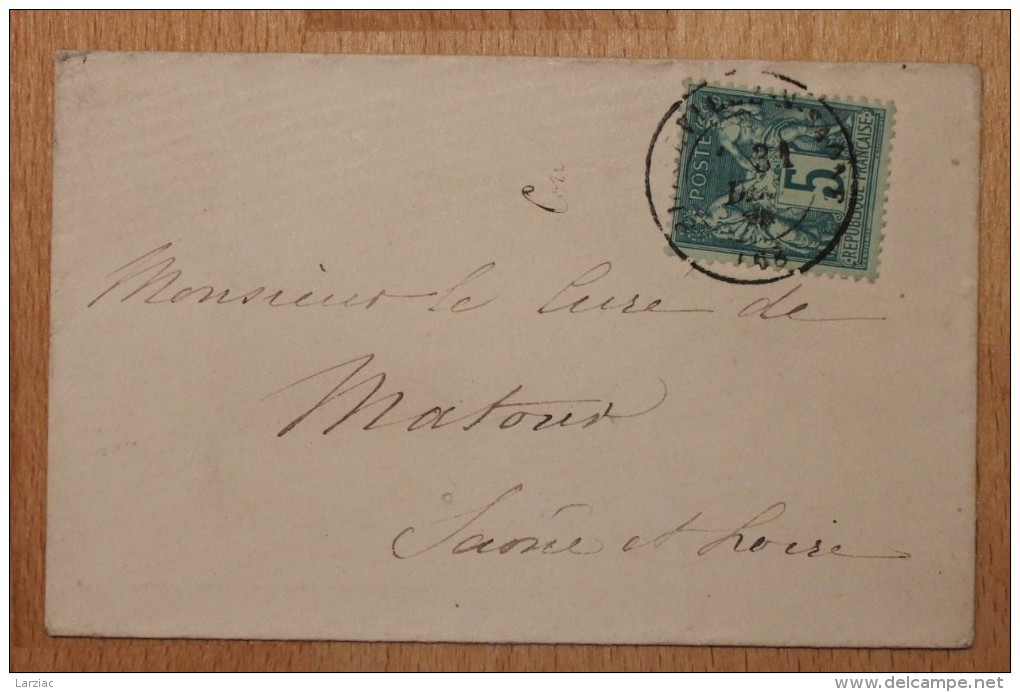 POSTE
5
REPUBLIQUE FRANÇAISE
31
Monsieur le Cure de
Matour
Saône et Loire
Larziac
www.delcampe.net